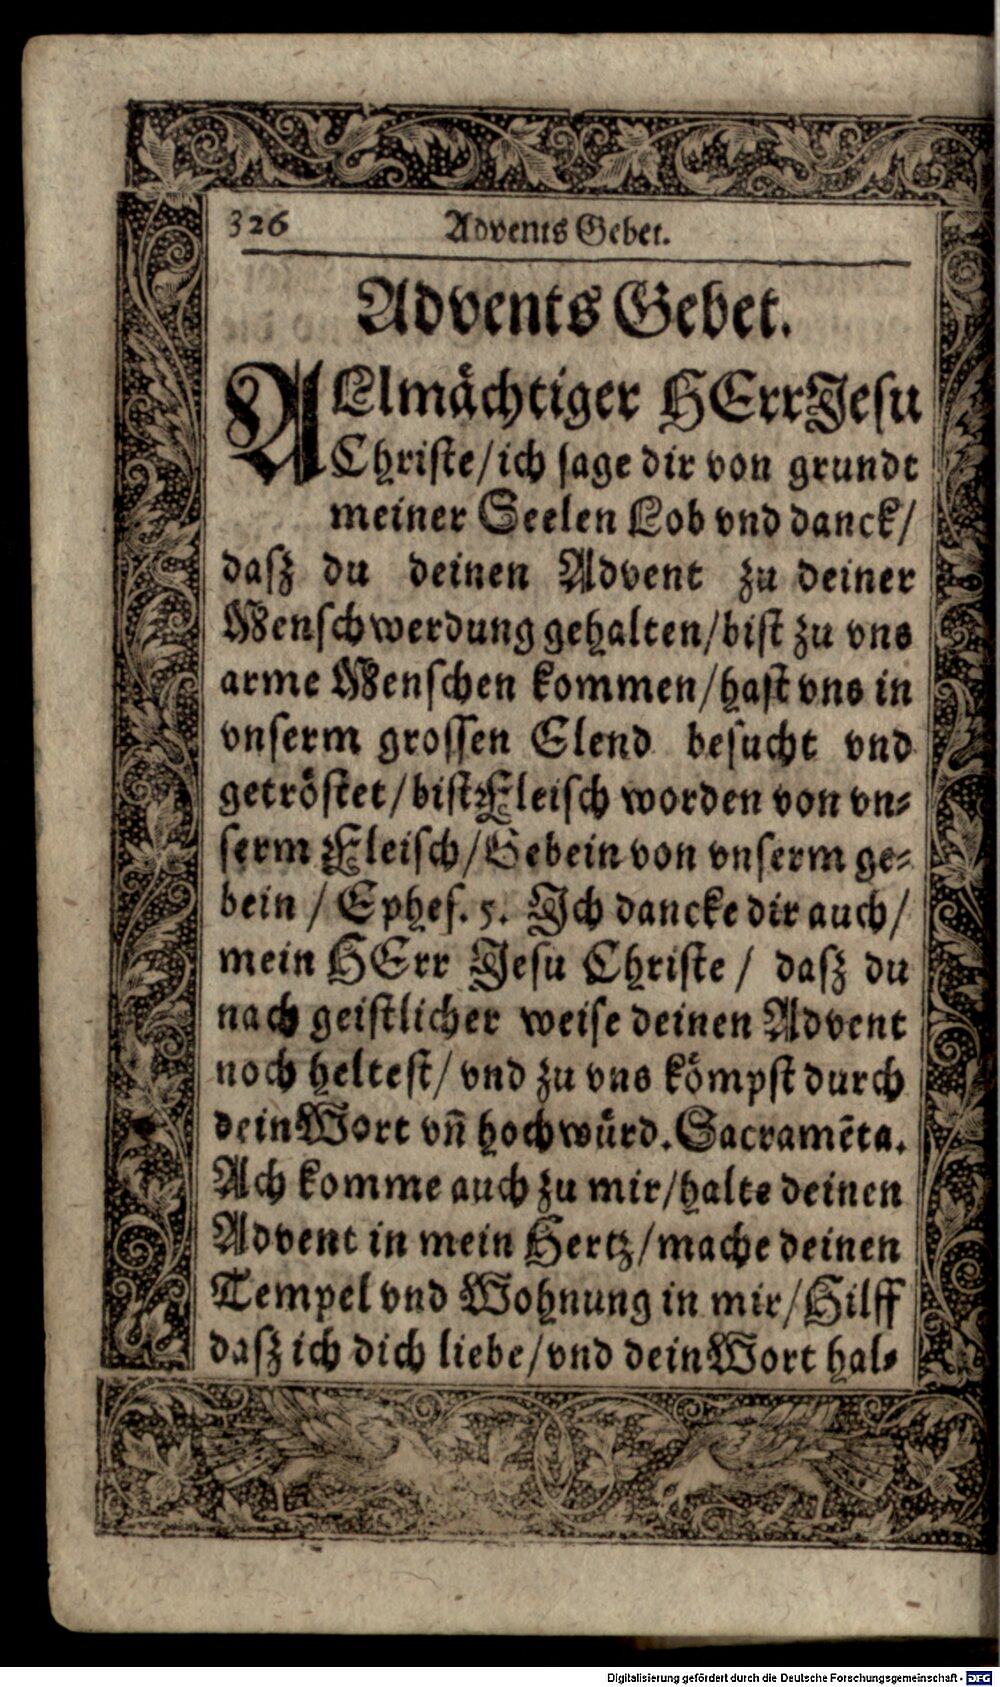 326 Advents Gebet.
Advents Gebet.
ALlmächtiger HErr Jesu
Christe/ich sage dir von grundt
meiner Seelen Lob vnd danck/
dasz du deinen Advent zu deiner
Menschwerdung gehalten/bist zu vns
arme Menschen kommen/hast vns in
vnserm grossen Elend besucht vnd
getröstet/bist Fleisch worden von vn-
serm Fleisch/Gebein von vnserm ge-
bein / Ephes. 5. Ich dancke dir auch/
mein HErr Jesu Christe / dasz du
nach geistlicher weise deinen Advent
noch heltest/ vnd zu vns kömpst durch
dein Wort vn̄ hochwürd. Sacramēta.
Ach komme auch zu mir/halte deinen
Advent in mein Hertz/mache deinen
Tempel vnd Wohnung in mir/Hilff
dasz ich dich liebe/vnd dein Wort hal-
Digitalisierung gefördert durch die Deutsche Forschungsgemeinschaft - DFG